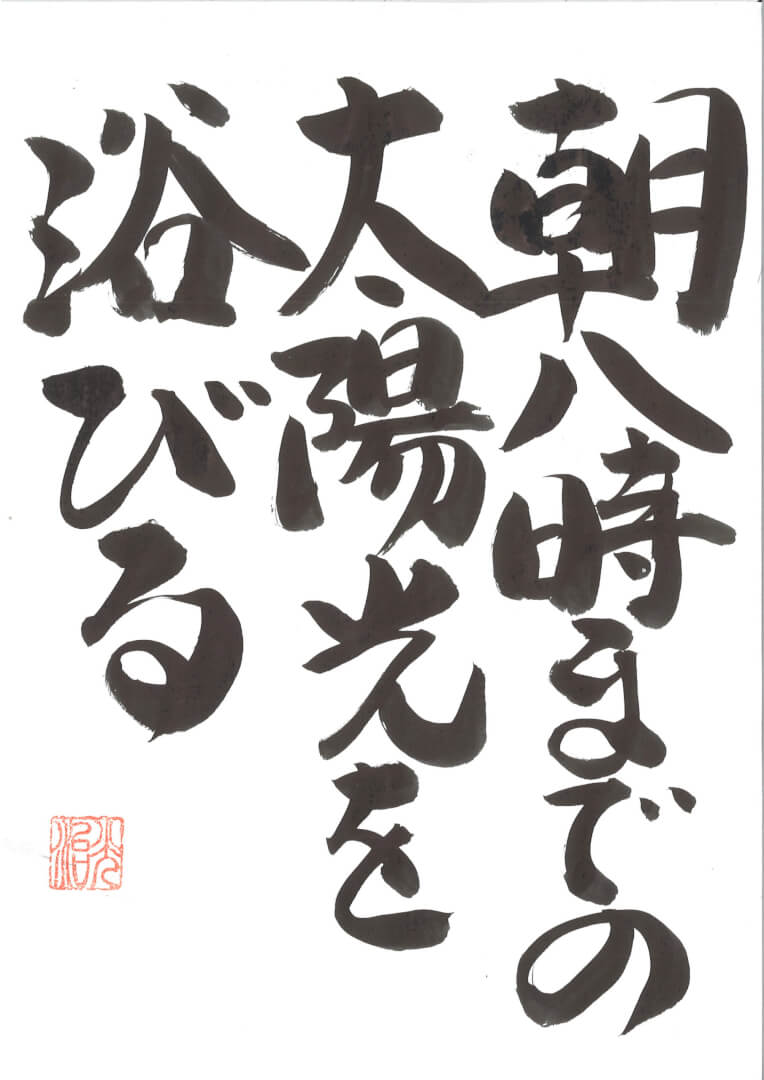 朝八時までの
太陽光を
浴びる